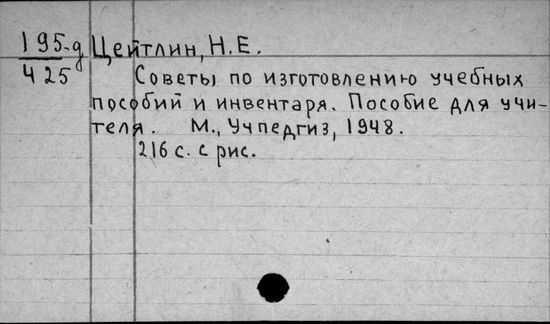 195-д Цейтлин, Н.Е.
425 Советы по изготовлению учебных
пособий и инвентаря. Пособие для учи-
теля. М., Учпедгиз, 1948.
216 с. с рис.